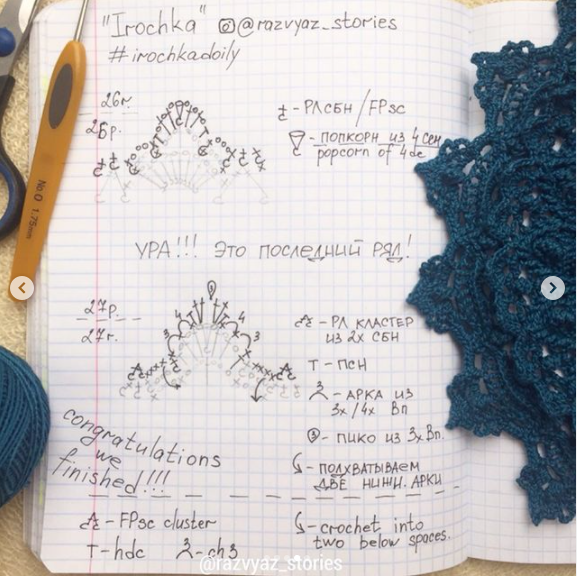 "Irochka" @razvyaz_stories
#irochkadoily
26r.
26р.
- РЛСБН/FPsc
- ПОПКОРН ИЗ 4 ССН
popcorn of 4dc
No.0 1.75mm
УРА!!! ЭТО ПОСЛЕДНИЙ РЯД!
27р.
27r.
4 4
3 3
- РЛ КЛАСТЕР
ИЗ 2х СБН
Т - ПСН
- АРКА ИЗ
3х/4х ВП
3 - ПИКО ИЗ 3х Вп.
- ПОДХВАТЫВАЕМ
ДВЕ НИЖН. АРКИ
congratulations
we
finished!!!
- FPsc cluster
T - hdc
- ch3
- crochet into
two below spaces.
@razvyaz_stories